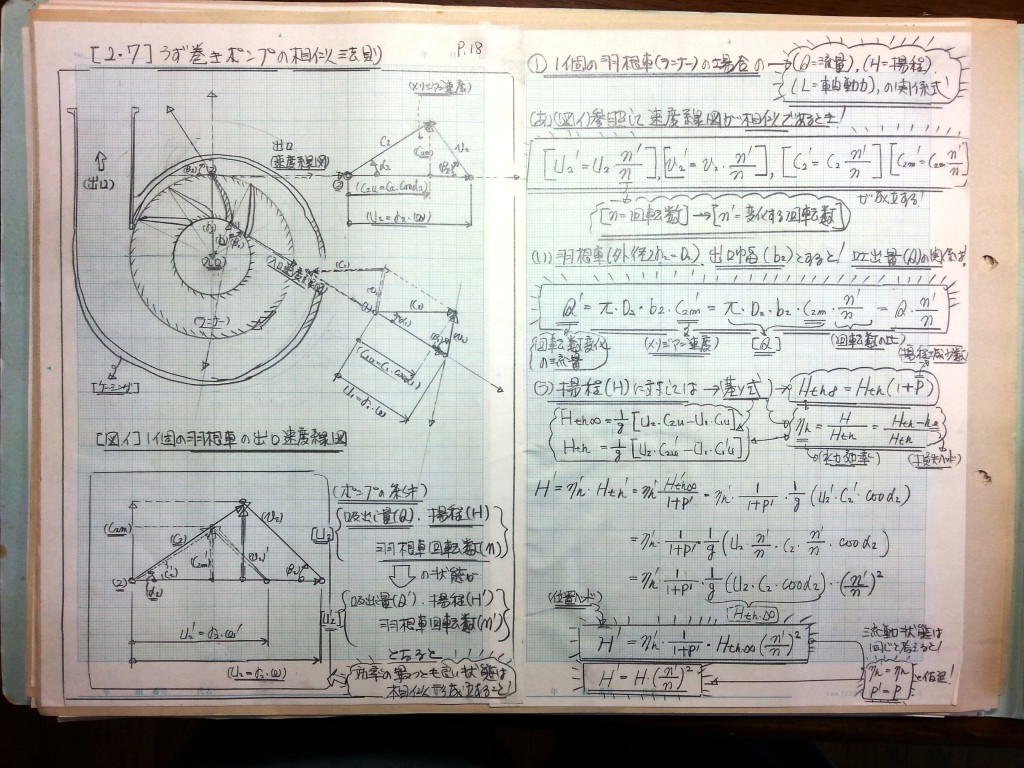 [2・7] うず巻きポンプの相似法則
P.18
(メリピアン速度)
出口
(速度線図)
(出口)
(C2u=C2・cosα2)
(U2=r2・ω)
(ランナー)
(C1u=C1・cosα1)
U1=r1・ω
[ケーシング]
[図イ] 1個の羽根車の出口速度線図
(C2m)
(C2)
(U2)
U2'=r2・ω'
(U2=r2・ω)
(ポンプの条件)
吸出し量(Q)・揚程(H)
羽根車回転数(n)
の状態が
吸出量(Q')・揚程(H')
羽根車回転数(n')
となると
相似形成立すること!
① 1個の羽根車(ランナー)の場合の→(Q=流量),(H=揚程)
(L=軸動力),の関係式
(あ)(図イ)参照して速度線図が相似であるとき!
[U2'=U2 n'/n],[v2'=v2・n'/n],[C2'=C2 n'/n][C2m'=C2m n'/n]
が成立する!
[n=回転数]→[n'=変化する回転数]
(い)羽根車(外径2r2=D2),出口巾(b2)とすると!吐出量(Q)の関係は!
Q'=π・D2・b2・C2m'=π・D2・b2・C2m・n'/n=Q・n'/n
回転数変化の流量
(メリピアン速度)
[Q]
(回転数の比)
う)揚程(H)に対しては→(基本式)→Hth∞=Hth(1+P)
Hth∞=1/g[U2・C2u-U1・C1u]
Hth=1/g[U2・C2u'-U1・C1'u]
ηh=H/Hth=Hth-hl/Hth
(水力効率)
(損失ヘッド)
H'=ηh'・Hth'=ηh' Hth∞'/1+P'=ηh'・1/1+P'・1/g(U2'・C2'・cosα2)
=ηh'・1/1+P'・1/g(U2 n'/n・C2・n'/n・cosα2)
=ηh'・1/1+P'・1/g(U2・C2・cosα2)・(n'/n)²
[Hth∞]
(位置ヘッド)
H'=ηh'・1/1+P'・Hth∞(n'/n)²
H'=H(n'/n)²
流動状態は
同じと考えると!
ηh'=ηh
P'=P
と仮定!